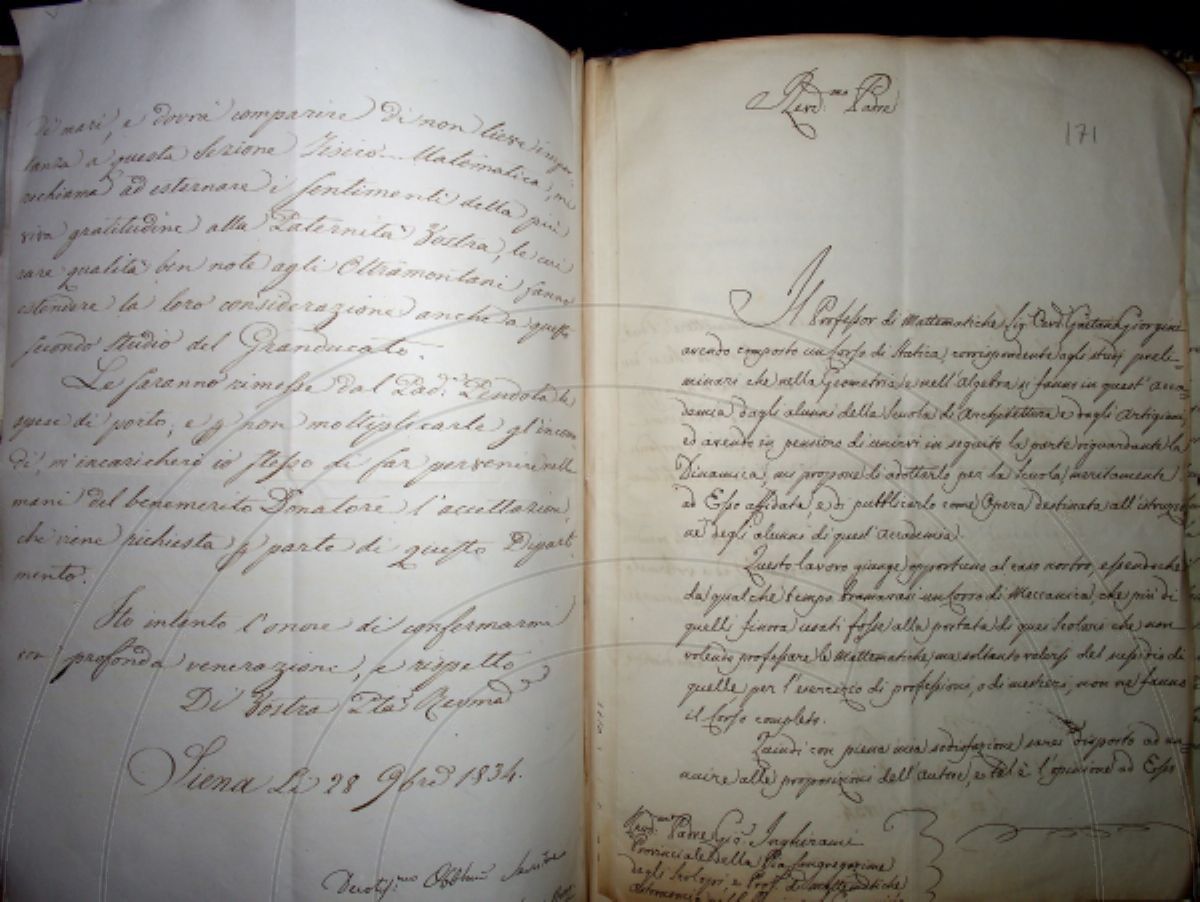 di mari, e dovrà comparire di non lieve impor-
tanza a questa Sezione Fisico-Matematica, mi
richiama ad esternare i sentimenti della più
viva gratitudine alla Paternità Vostra, le cui
rare qualità ben note agli Oltramontani fanno
estendere la loro considerazione anche a questo
secondo studio del Granducato.
Le saranno rimesse dal Pad.e Pendola le
spese di porto; e p non moltiplicarle gl'incomo-
di, m'incaricherò io stesso di far pervenire nelle
mani del benemerito Donatore l'accettazione,
che viene richiesta p parte di questo Dipart
mento.
Ho intanto l'onore di confermarmi
con profonda venerazione, e rispetto
Di Vostra Ptà Revma
Siena Li 28 9bre 1834.
Devotis.mo Obblmo Servitore
Revd.mo Padre
171
Il Professor di Mattematiche Sig. Cav. Gaetano Giorgini
avendo composto un Corso di Statica, corrispondente agli studj preli-
minari che nella Geometria e nell'Algebra si fanno in quest'acca-
demia dagli alunni della Scuola di Architettura e dagli Artigiani
ed avendo in pensiero di unirvi in seguito la parte riguardante la
Dinamica, mi propone di adottarlo per la Scuola, meritamente
ad Esso affidata, e di pubblicarlo come Opera destinata all'istruzio-
ne degli alunni di quest'Accademia.
Questo lavoro giunge opportuno al caso nostro, essendochè
da qualche tempo bramavasi un Corso di Meccanica, che più di
quelli finora usati fosse alla portata di quei scolari che non
volendo professare le Mattematiche, ma soltanto valersi del sussidio di
quelle, per l'esercizio di professioni, o di mestieri, non ne fanno
il Corso completo.
Quindi con piena mia sodisfazione sarei disposto ad an-
nuire alle proposizioni dell'Autore, e tal è l'opinione ad Esso
Revd.mo Padre Gio. Inghirami
Provinciale della Pia Congregazione
degli Scolopj, e Prof. di Mattematiche